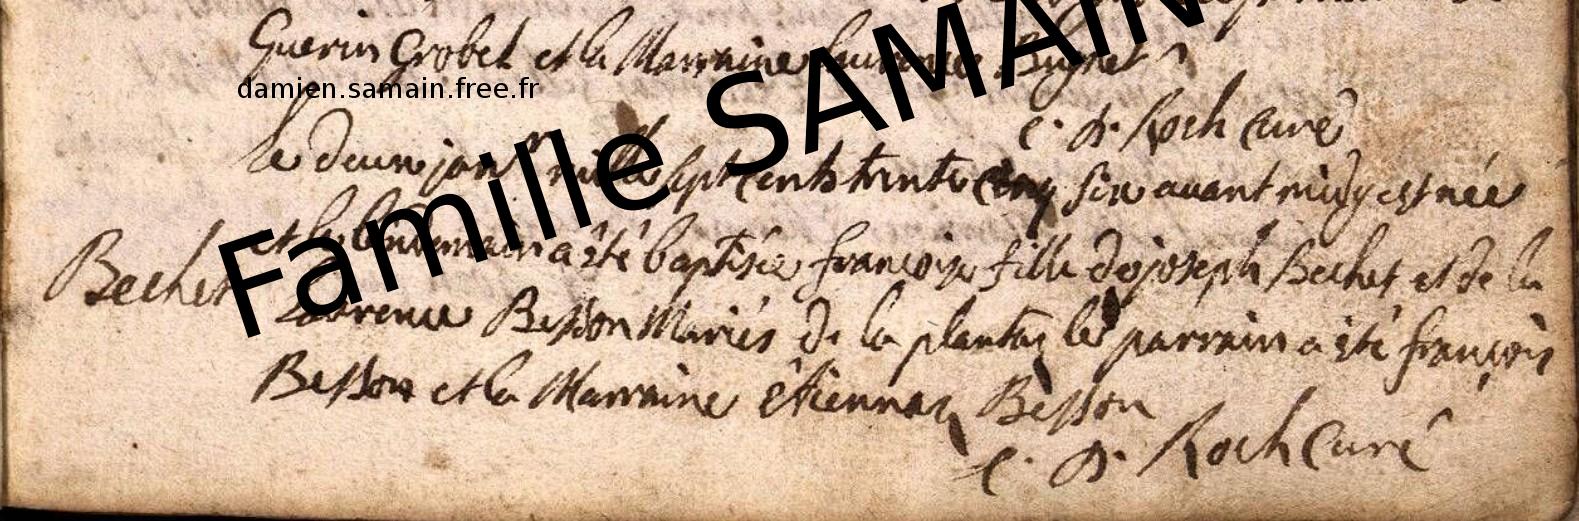 Guerin Grobel et la Marraine laurence Bugnet
damien.samain.free.fr
Famille SAMAIN
C. D. Roch Curé
le deux janr mille sept cents trente cinq six avant midy est née
et le lendemain a été baptisée françoise fille de joseph Bechet et de la
Bechet
Laurence Besson Mariés de la plantaz le parrain a été françois
Besson et la Marraine êtiennaz Besson
C. D. Roch Curé